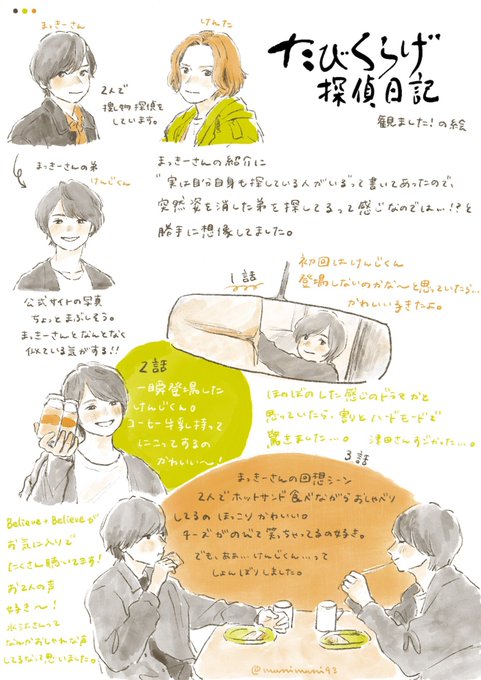 まっきーさん
けんた
2人で
捜し物探偵を
しています。
たびくらげ
探偵日記
観ました！の絵
まっきーさんの弟
けんじくん
まっきーさんの紹介に
"実は自分自身も捜している人がいる"って書いてあったので、
突然姿を消した弟を探してるって感じなのでは…!?と
勝手に想像してました。
公式サイトの写真
ちょっとまぶしそう。
まっきーさんとなんとなく
似ている気がする!!
1話
初回はけんじくん
登場しないのかな〜と思っていたら…
かわいい子きたよ。
2話
一瞬登場した
けんじくん。
コーヒー牛乳持って
にこってするの
かわいい〜！
ほのぼのした感じのドラマかと
思っていたら、割とハードモードで
驚きました…。 津田さんすごかった…。
3話
まっきーさんの回想シーン
2人でホットサンド食べながらおしゃべり
してるの ほっこり かわいい。
チーズがのびて笑っちゃってるの好き。
でも、ああ…けんじくん…って
しょんぼりしました。
Believe×Believeが
お気に入りで
たくさん聴いてます！
お2人の声
好き〜！
水江さんって
なんかおしゃれな声
してるな！？思いました。
@munimuni93